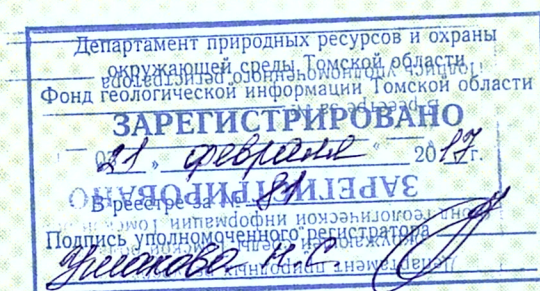 Департамент природных ресурсов и охраны
окружающей среды Томской области
Фонд геологической информации Томской области
ЗАРЕГИСТРИРОВАНО
21 февраля 2017 г.
В реестре за № 81
Подпись уполномоченного регистратора
Ушакова Н.С.